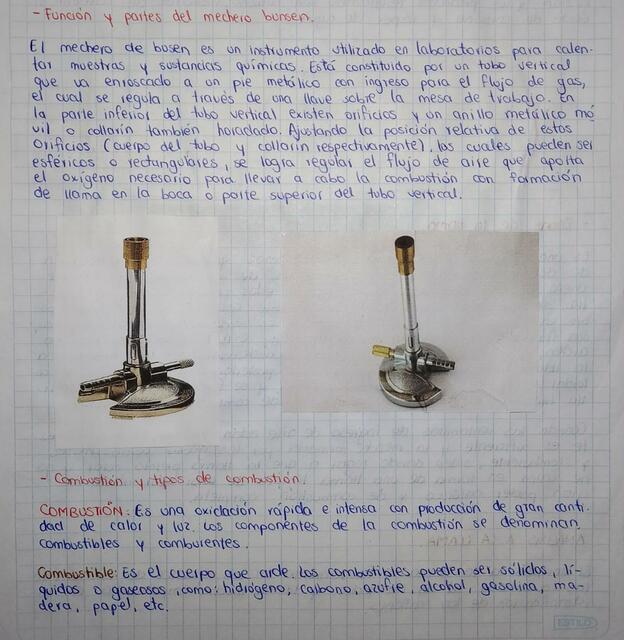 - Función y partes del mechero bunsen.
El mechero de busen es un instrumento utilizado en laboratorios para calen-
tar muestras y sustancias químicas. Está constituido por un tubo vertical
que va enroscado a un pie metálico con ingreso para el flujo de gas,
el cual se regula a través de una llave sobre la mesa de trabajo. En
la parte inferior del tubo vertical existen orificios y un anillo metálico mó
vil o collarín también horadado. Ajustando la posición relativa de estos
orificios (cuerpo del tubo y collarín respectivamente), los cuales pueden ser
esféricos o rectangulares, se logra regular el flujo de aire que aporta
el oxígeno necesario para llevar a cabo la combustión con formación
de llama en la boca o parte superior del tubo vertical.
- Combustión y tipos de combustión.
COMBUSTIÓN: Es una oxidación rápida e intensa con producción de gran canti-
dad de calor y luz. Los componentes de la combustión se denominan
combustibles y comburentes.
Combustible: Es el cuerpo que arde. Los combustibles pueden ser sólidos, lí-
quidos o gaseosos, como: hidrógeno, carbono, azufre, alcohol, gasolina, ma-
dera, papel, etc.
ESTILO